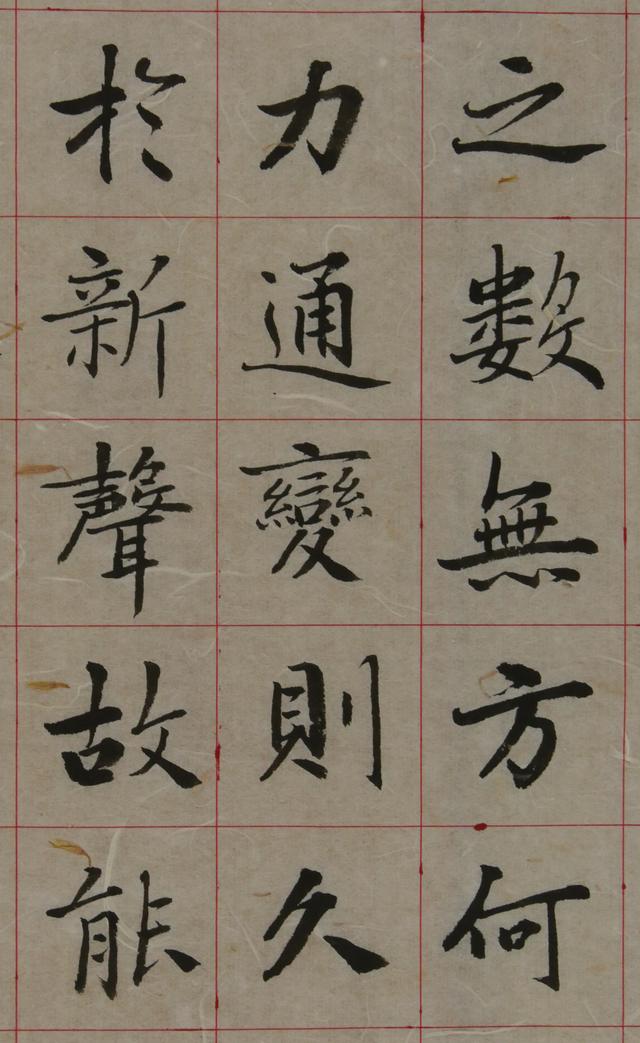 之數無方何
力通變則久
於新聲故能